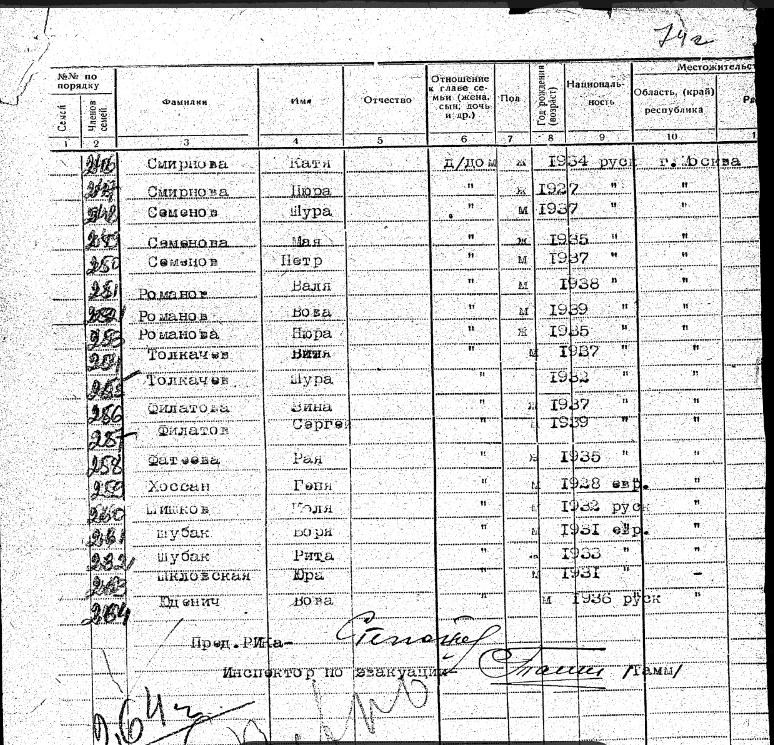 74г
№№ по порядку Фамилия Имя Отчество Отношение к главе семьи (жена, сын, дочь и др.) Пол Год рождения (возраст) Националь-ность Местожительст
Семей Членов семей Область, (край) республика Ра
1 2 3 4 5 6 7 8 9 10 1
246 Смирнова Катя д/дом ж 1934 руск г. осква
247 Смирнова Нюра " ж 1927 " "
248 Семенов Шура " м 1937 " "
249 Семенова Мая " ж 1935 " "
250 Семенов Петр " м 1937 " "
251 Романов Валя " м 1938 " "
252 Романов Вова " м 1939 " "
253 Романова Нюра " ж 1935 " "
254 Толкачев Витя " м 1937 " "
255 Толкачев Шура " 1932 " "
256 Филатова Зина " ж 1937 " "
257 Филатов Сергей " 1939 " "
258 Фатеева Рая " ж 1935 " "
259 Хоссан Геня " м 1928 евр. "
260 Шишков Коля " м 1932 руск "
261 Шубак Боря " м 1931 евр. "
262 Шубак Рита " 1933 " "
263 Шкловская Юра " м 1931 " –
264 Юденич Вова " м 1936 руск "
Пред.РИКа-
Инспектор по эвакуации /Ламы/
64